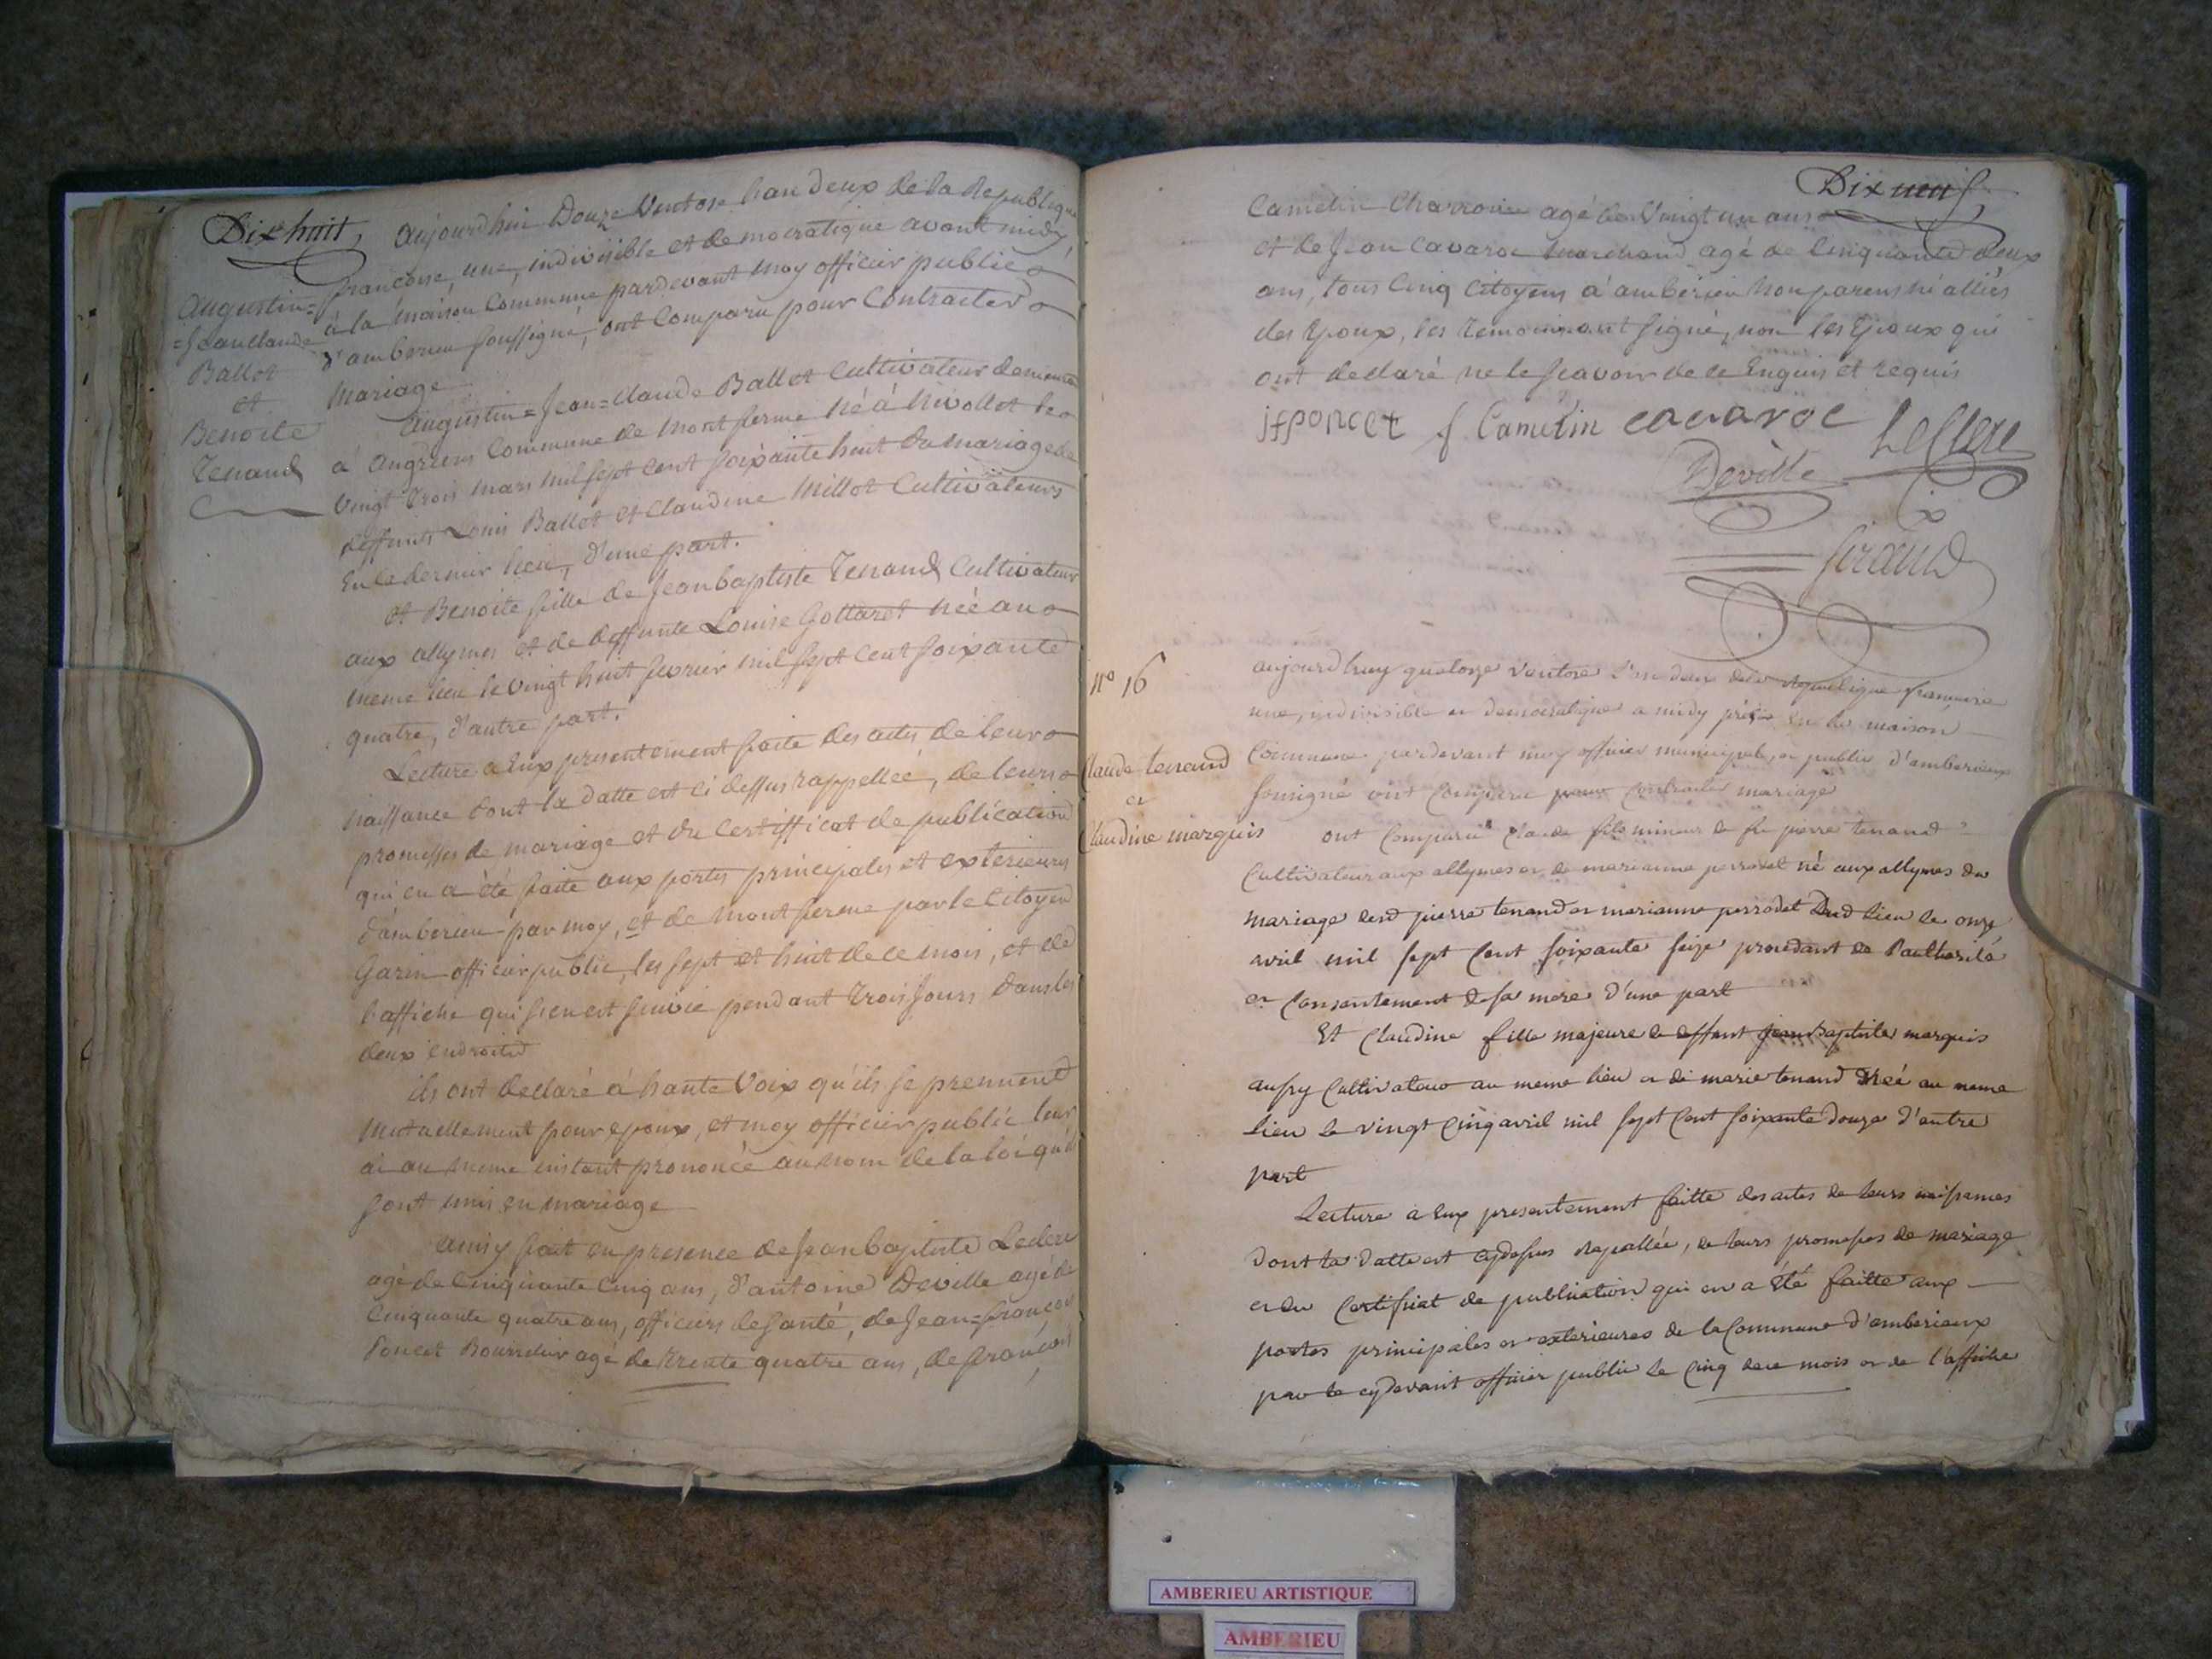 Dix huit,
Augustin=
=Jean Claude
Ballot
et
Benoite
Tenand
Aujourd'hui Douze Ventose l'an deux de la Republique
francoise, une, indivisible et democratique avant midy
à la maison Commune pardevant moy officier public
d'amberieu soussigné, ont Comparu pour Contracter
Mariage
Augustin=Jean=Claude Ballot Cultivateur demeurant
à Angrieres Commune de Montferme né à Nivollet le
vingt trois mars mil sept cent soixante huit du mariage de
deffunts Louis Ballot et Claudine Millot Cultivateurs
En ce dernier lieu, d'une part.
et Benoite fille de Jeanbaptiste Tenand Cultivateur
aux allymes et de deffunte Louise Gottaret née au
meme lieu le vingt huit fevrier mil sept cent soixante
quatre, d'autre part.
Lecture a Eux presentement faite des actes de leur
naissance dont la datte est ci dessus rappellée, de leurs
promesses de mariage et du Certifficat de publication
qui en a été faite aux portes principales et exterieures
d'amberieu par moy, et de Montferme par le Citoyen
Garin officier public, les sept et huit de ce mois, et de
l'affiche qui s'en est suivie pendant trois jours dans les
deux endroits
ils ont declaré à haute Voix qu'ils se prennent
mutuellement pour epoux, et moy officier public leur
ai au meme instant prononcé au nom de la loi qu'ils
sont unis en mariage
ainsy fait en presence de Jeanbaptiste Leclerc
agé de Cinquante Cinq ans, d'antoine Deville agé de
Cinquante quatre ans, officiers de santé, de Jean=françois
Poncet Bourrelier agé de trente quatre ans, de françois
Dix neuf,
Camelin Charron agé de Vingt un ans
et de Jean Cavaroc Marchand agé de Cinquante deux
ans, tous Cinq Citoyens d'amberieu Non parens ni alliés
des Epoux, les temoins ont signé, non les Epoux qui
ont declaré ne le sçavoir de ce Enquis et requis
jfponcet f Camelin cavaroc Leclerc
Deville
Giraud
N° 16
Claude tenand
et
Claudine marquis
aujourd'huy quatorze ventose l'an deux de la republique francaise
une, indivisible et democratique a midy précis En la maison
Commune pardevant moy officier municipal, et public d'amberieux
sousigné ont Comparu pour Contracter mariage
ont Comparu Claude fils mineur de feu pierre tenand
Cultivateur aux allymes et de marianne perrodet né aux allymes du
mariage dud pierre tenand et marianne perrodet dud lieu le onze
avril mil sept Cent soixante seize procedant de l'authorité
et Consantement de sa mere d'une part
Et Claudine fille majeure de deffunt Jean Baptiste marquis
aussy Cultivateur au meme lieu et de marie tenand née au meme
lieu le vingt cinq avril mil sept Cent soixante douze d'autre
part
Lecture a Eux presentement faitte des actes de leurs naissances
dont la datte est cydessus rapellée, de leurs promesses de mariage
et du Certificat de publication qui en a été faitte aux
portes principales et exterieures de la Commune d'amberieux
par le cydevant officier public le Cinq de ce mois et de l'affiche
AMBERIEU ARTISTIQUE
AMBERIEU